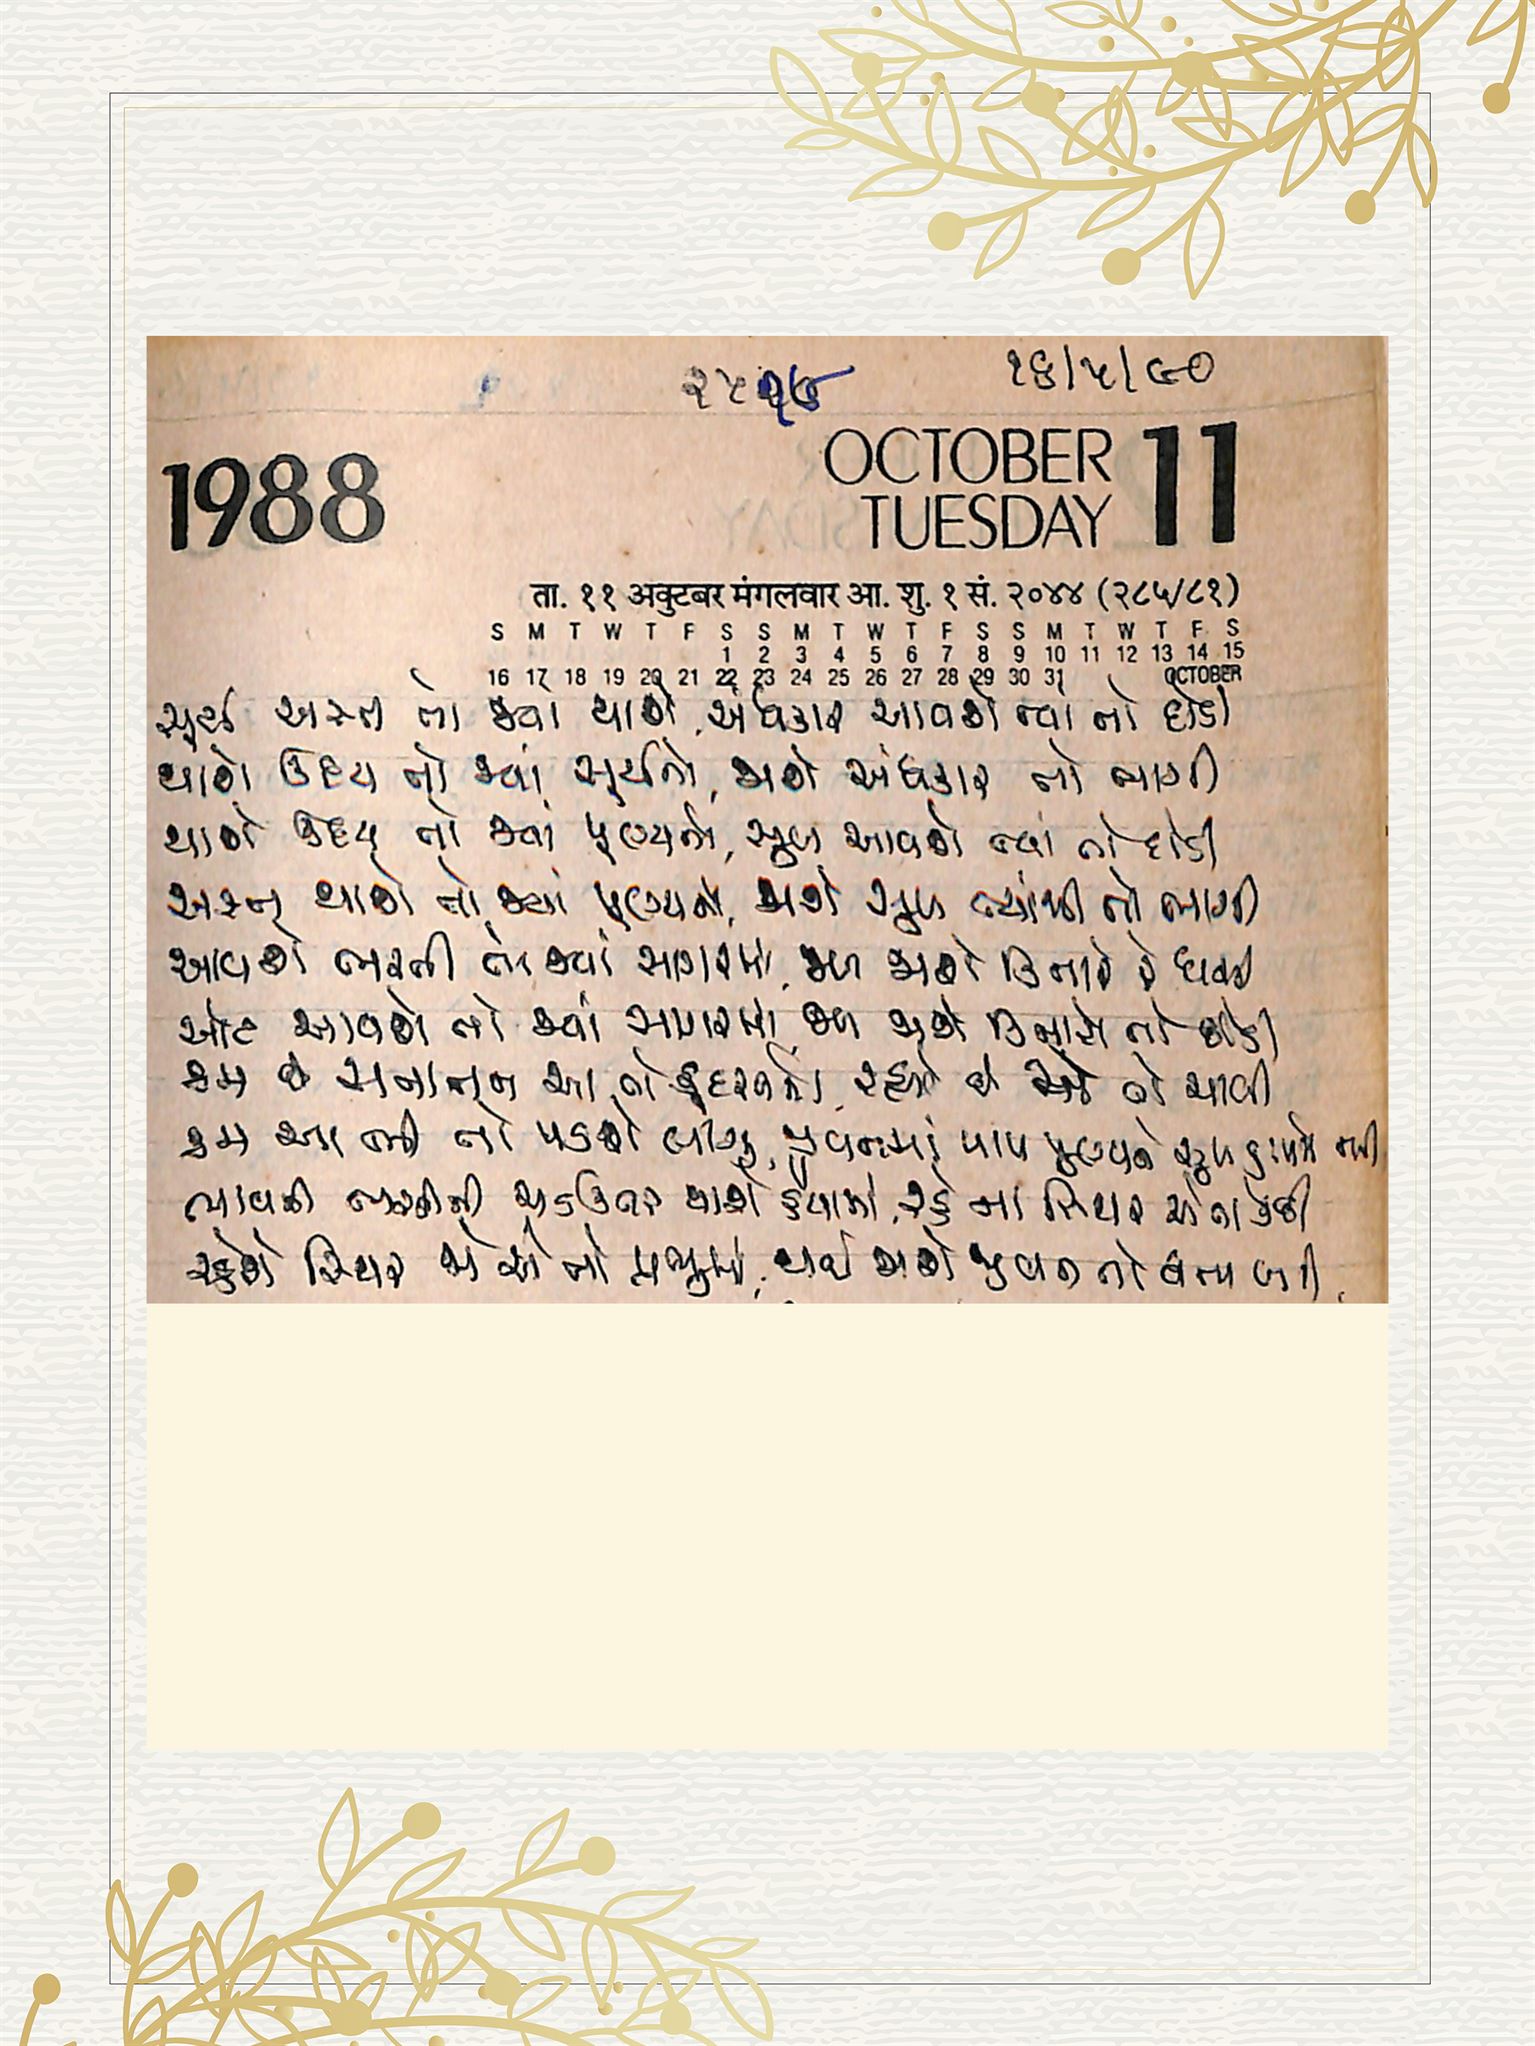 ૨૫૨૭ ૧૬/૫/૯૦
1988 OCTOBER 11
TUESDAY
ता. ११ अक्टुबर मंगलवार आ. शु. १ सं. २०४४ (२८५/८१)
S M T W T F S S M T W T F S S M T W T F S
1 2 3 4 5 6 7 8 9 10 11 12 13 14 15
16 17 18 19 20 21 22 23 24 25 26 27 28 29 30 31 OCTOBER
સૂર્ય અસ્ત તો જ્યાં થાશે, અંધકાર આવશે ત્યાં તો દોડી
થાશે ઉદય તો જ્યાં સૂર્યનો, જાશે અંધકાર તો ભાગી
થાશે ઉદય તો જ્યાં પુણ્યનો, સુખ આવશે ત્યાં તો દોડી
અસ્ત થાશે તો જ્યાં પુણ્યનો, જાશે સુખ ત્યાંથી તો ભાગી
આવશે ભરતી તો જ્યાં સાગરમાં, જળ જાશે કિનારે રે ધસી
ઓટ આવશે તો જ્યાં સાગરમાં, જળ જાશે કિનારો તો છોડી
ક્રમ છે સનાતન આ તો કુદરતનો, રહ્યો છે એ તો ચાલી
ક્રમ આ ની તો પડશે લાગુ, જીવનમાં પાપ પુણ્યને સુખ દુઃખને
ભાવની ભરતીની ચડઉતર થાશે હૈયામાં, રહે ના સ્થિર એ તો કદી
રહેશે સ્થિર જો એ તો પ્રભુમાં, થઈ જાશે જીવન તો ધન્ય બની